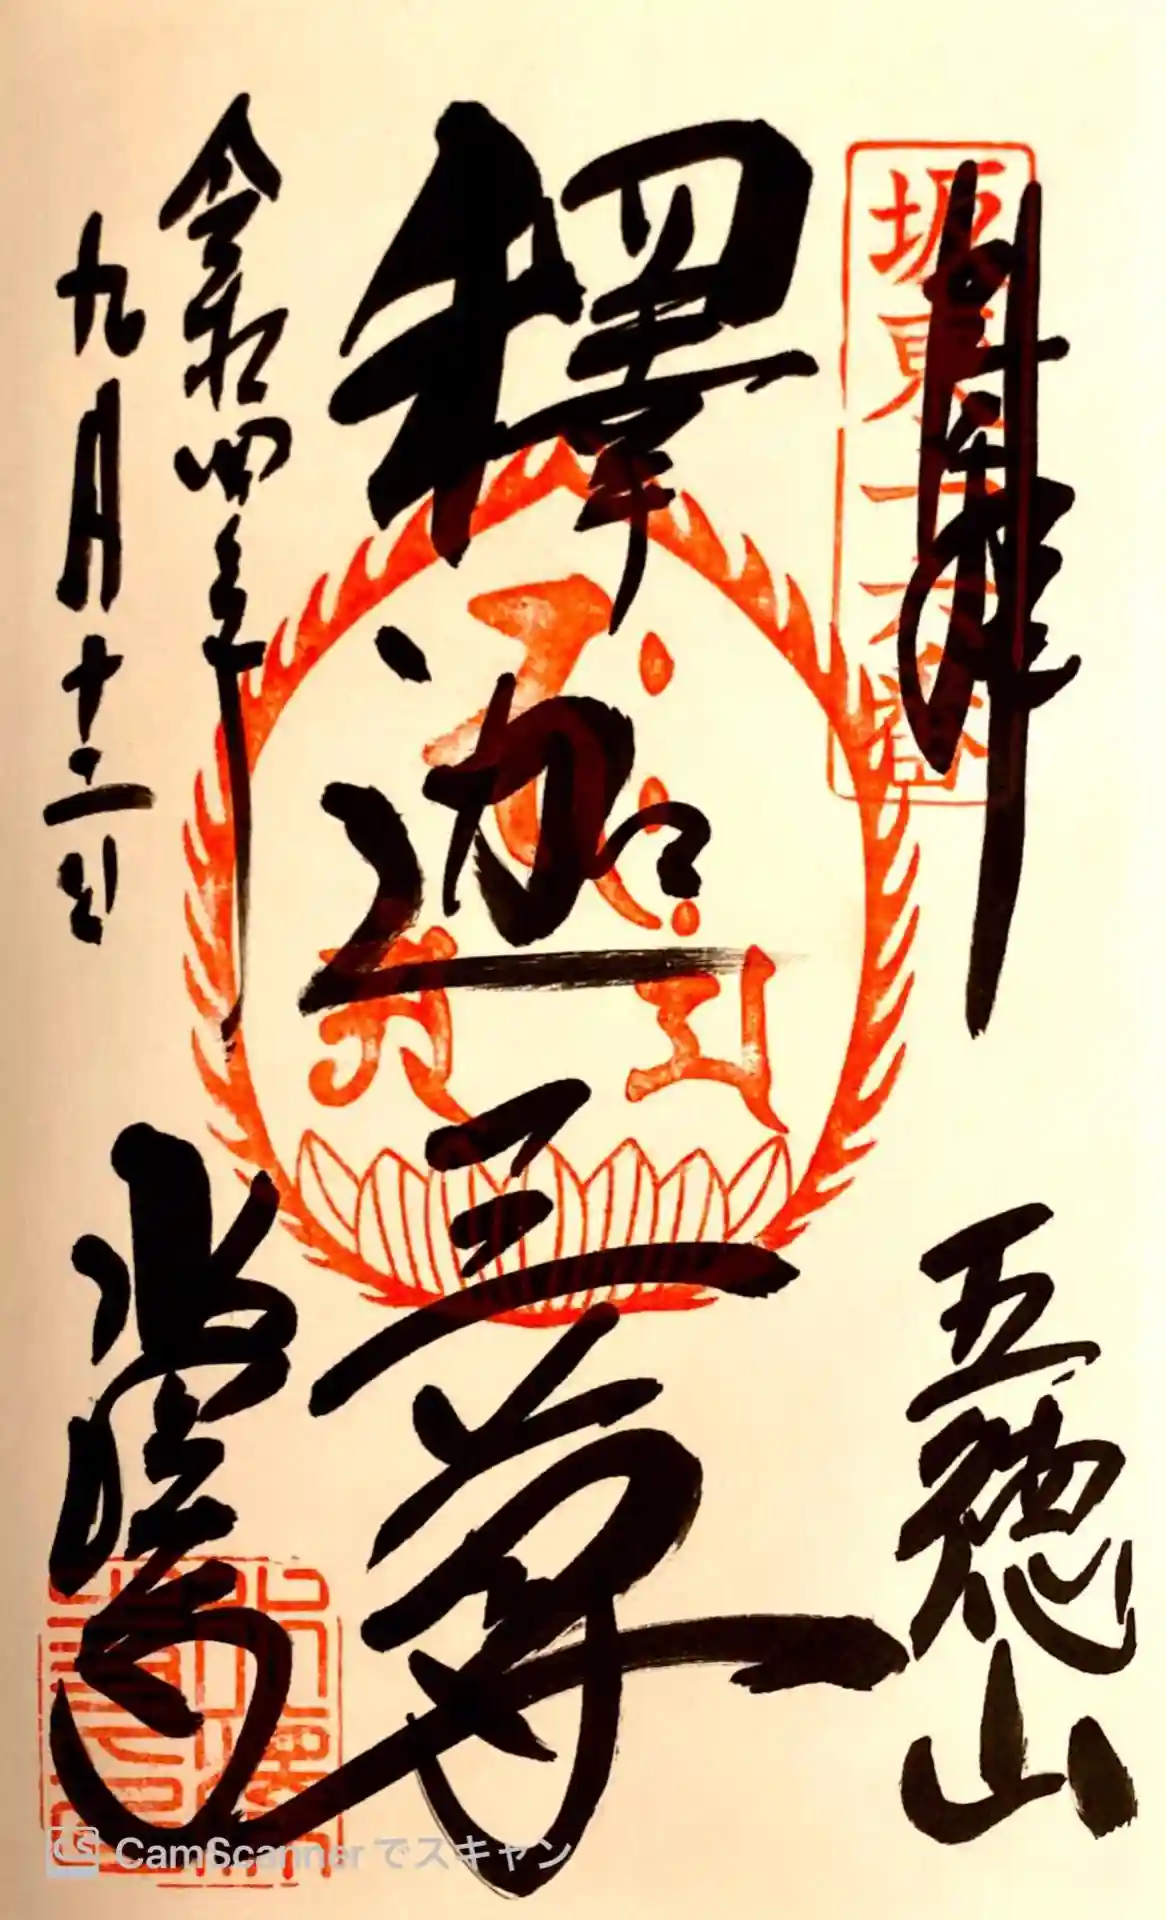 奉拝
坂東十六番
五徳山
釋迦三尊
令和四年
九月十二日
水澤寺
CS CamScanner でスキャン